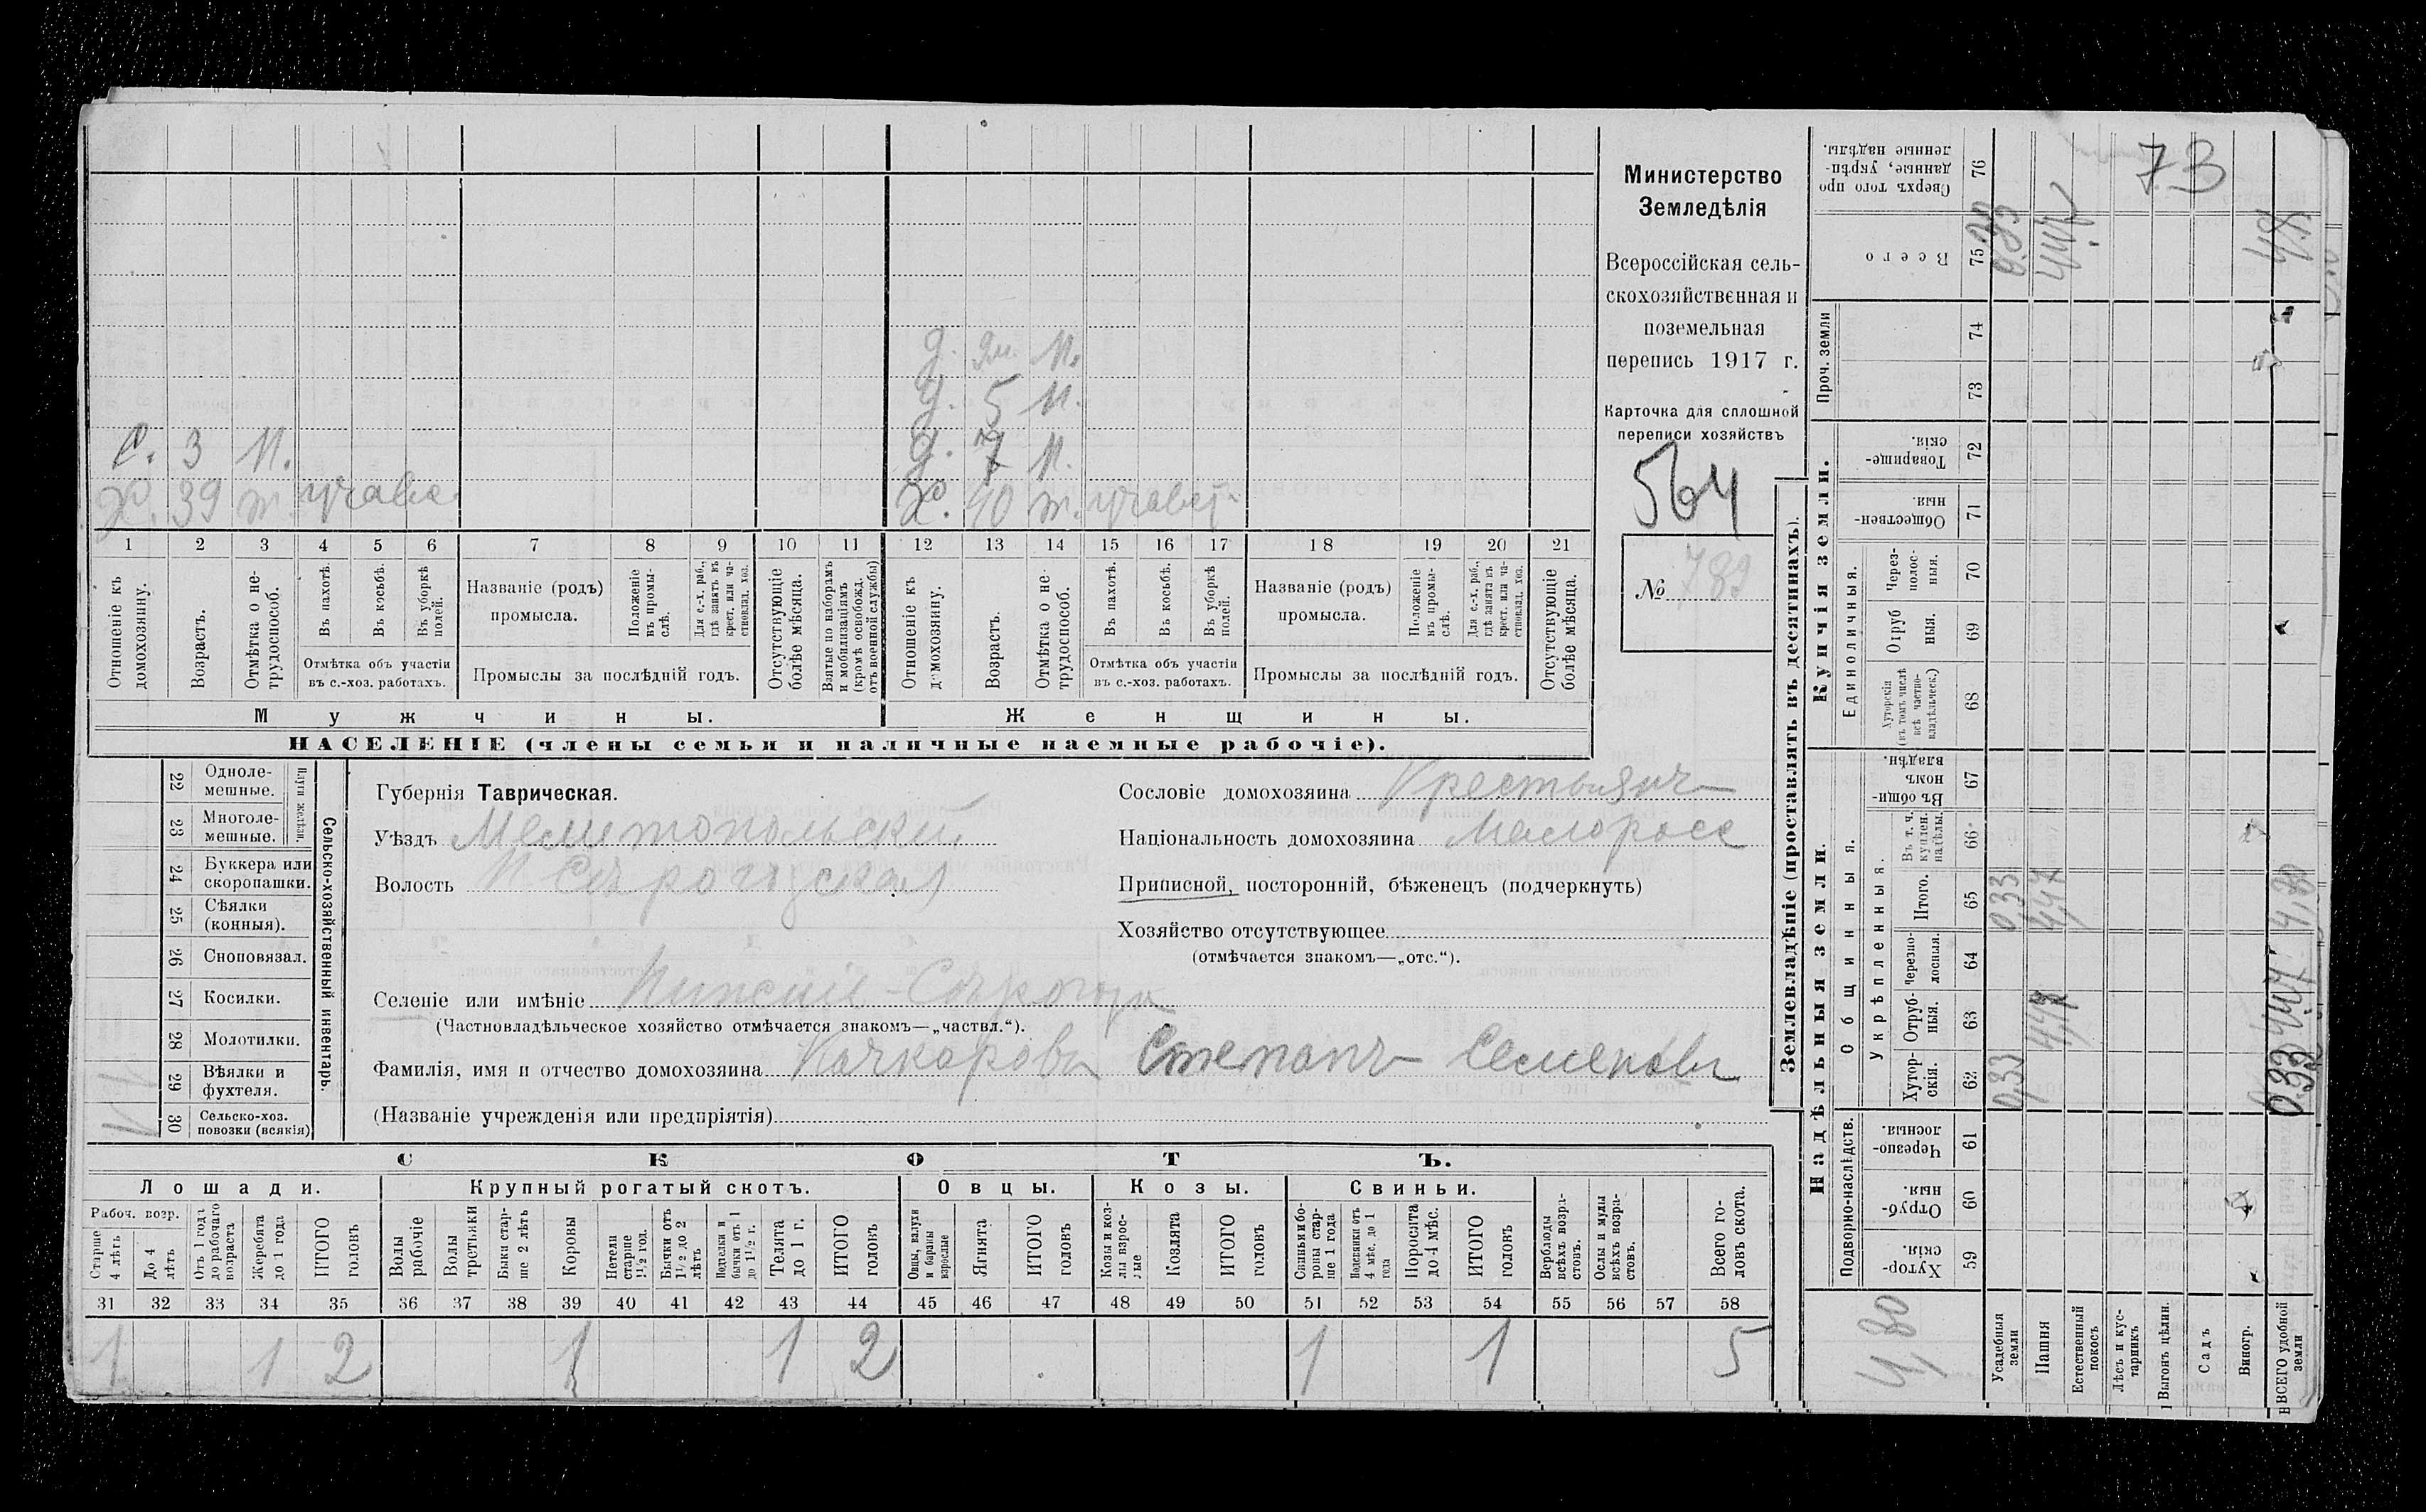 д. 2м. н.
д. 5 н.
с. 3 н.
д. 7 н.
х. 39 т.
х. 40 т.
1 2 3 4 5 6 7 8 9 10 11 12 13 14 15 16 17 18 19 20 21
Отношеніе къ домохозяину.
Возрастъ.
Отмѣтка о не-трудоспособ.
Въ пахотѣ.
Въ косьбѣ.
Въ уборкѣ полей.
Отмѣтка объ участіи въ с.-хоз. работахъ.
Названіе (родъ) промысла.
Положеніе въ промы-слѣ.
Для с.-х. раб., гдѣ занятъ въ крест. или ча-стновлад. хоз.
Промыслы за послѣдній годъ.
Отсутствующіе болѣе мѣсяца.
Взятые по наборамъ и мобилизаціямъ (кромѣ освобожд. отъ военной службы)
Отношеніе къ домохозяину.
Возрастъ.
Отмѣтка о не-трудоспособ.
Въ пахотѣ.
Въ косьбѣ.
Въ уборкѣ полей.
Отмѣтка объ участіи въ с.-хоз. работахъ.
Названіе (родъ) промысла.
Положеніе въ промы-слѣ.
Для с.-х. раб., гдѣ занятъ въ крест. или ча-стновлад. хоз.
Промыслы за послѣдній годъ.
Отсутствующіе болѣе мѣсяца.
Мужчины. Женщины.
НАСЕЛЕНІЕ (члены семьи и наличные наемные рабочіе).
Министерство
Земледѣлія
Всероссійская сель-
скохозяйственная и
поземельная
перепись 1917 г.
Карточка для сплошной
переписи хозяйствъ
564
№ 789
22 Одноле-мешные.
23 Многоле-мешные.
24 Буккера или скоропашки.
25 Сѣялки (конныя).
26 Сноповязал.
27 Косилки.
28 Молотилки.
29 Вѣялки и фухтеля.
30 Сельско-хоз. повозки (всякія)
Сельско-хозяйственный инвентарь.
Губернія Таврическая.
Уѣздъ Мелитопольскій
Волость Н Сѣрогозская
Селеніе или имѣніе Нижніе-Сѣрогозы
(Частновладѣльческое хозяйство отмѣчается знакомъ—„частвл.“).
Фамилія, имя и отчество домохозяина Качкаровъ Степанъ Семеновъ
(Названіе учрежденія или предпріятія)
Сословіе домохозяина Крестьянъ
Національность домохозяина Малороссъ
Приписной, посторонній, бѣженецъ (подчеркнуть)
Хозяйство отсутствующее
(отмѣчается знакомъ—„отс.“).
СКОТЪ.
Лошади. Крупный рогатый скотъ. Овцы. Козы. Свиньи.
Рабоч. возр.
Старше 4 лѣтъ
До 4 лѣтъ
Отъ 1 года до рабочаго возраста
Жеребята до 1 года
ИТОГО головъ
Волы рабочіе
Волы третьяки
Быки стар-ше 2 лѣтъ
Коровы
Нетели старше 1½ год.
Бычки отъ 1½ до 2 лѣтъ
Подтелки и бычки отъ 1 до 1½ г.
Телята до 1 г.
ИТОГО головъ
Овцы, валухи и бараны взрослые
Ягнята
ИТОГО головъ
Козы и коз-лы взрос-лые
Козлята
ИТОГО головъ
Свиньи и бо-ровы стар-ше 1 года
Подсвинки отъ 4 мѣс. до 1 года
Поросята до 4 мѣс.
ИТОГО головъ
Верблюды всѣхъ возра-стовъ.
Ослы и мулы всѣхъ возра-стовъ.
Всего го-ловъ скота.
31 32 33 34 35 36 37 38 39 40 41 42 43 44 45 46 47 48 49 50 51 52 53 54 55 56 57 58
1 1 2 1 1 2 1 1 5
Землевладѣніе (проставлять въ десятинахъ).
Надѣльныя земли. Купчія земли. Проч. земли
Подворно-наслѣдств.
Общинныя.
Укрѣпленныя.
Единоличныя.
Сверхъ того про данные, укрѣп-ленные надѣлы. 76
Всего 75
74
73
Товарище-скія. 72
Обществен-ныя. 71
Через-полос-ныя. 70
Отруб ныя. 69
Хуторскія (въ томъ числѣ всѣ частно-владѣльческ.) 68
Въ общи-номъ владѣн. 67
Въ т. ч. куплен. надѣлы. 66
Итого. 65
Черезпо-лосныя. 64
Отруб-ныя. 63
Хутор-скія. 62
Черезпо-лосныя. 61
Отруб-ныя. 60
Хутор-скія. 59
Усадебныя земли
Пашня
Естественный покосъ
Лѣсъ и кус-тарникъ
Выгонъ цѣлин.
Садъ
Виногр.
ВСЕГО удобной земли
73
0,33
4,47
0,33
4,47
4,80
0,33
4,80